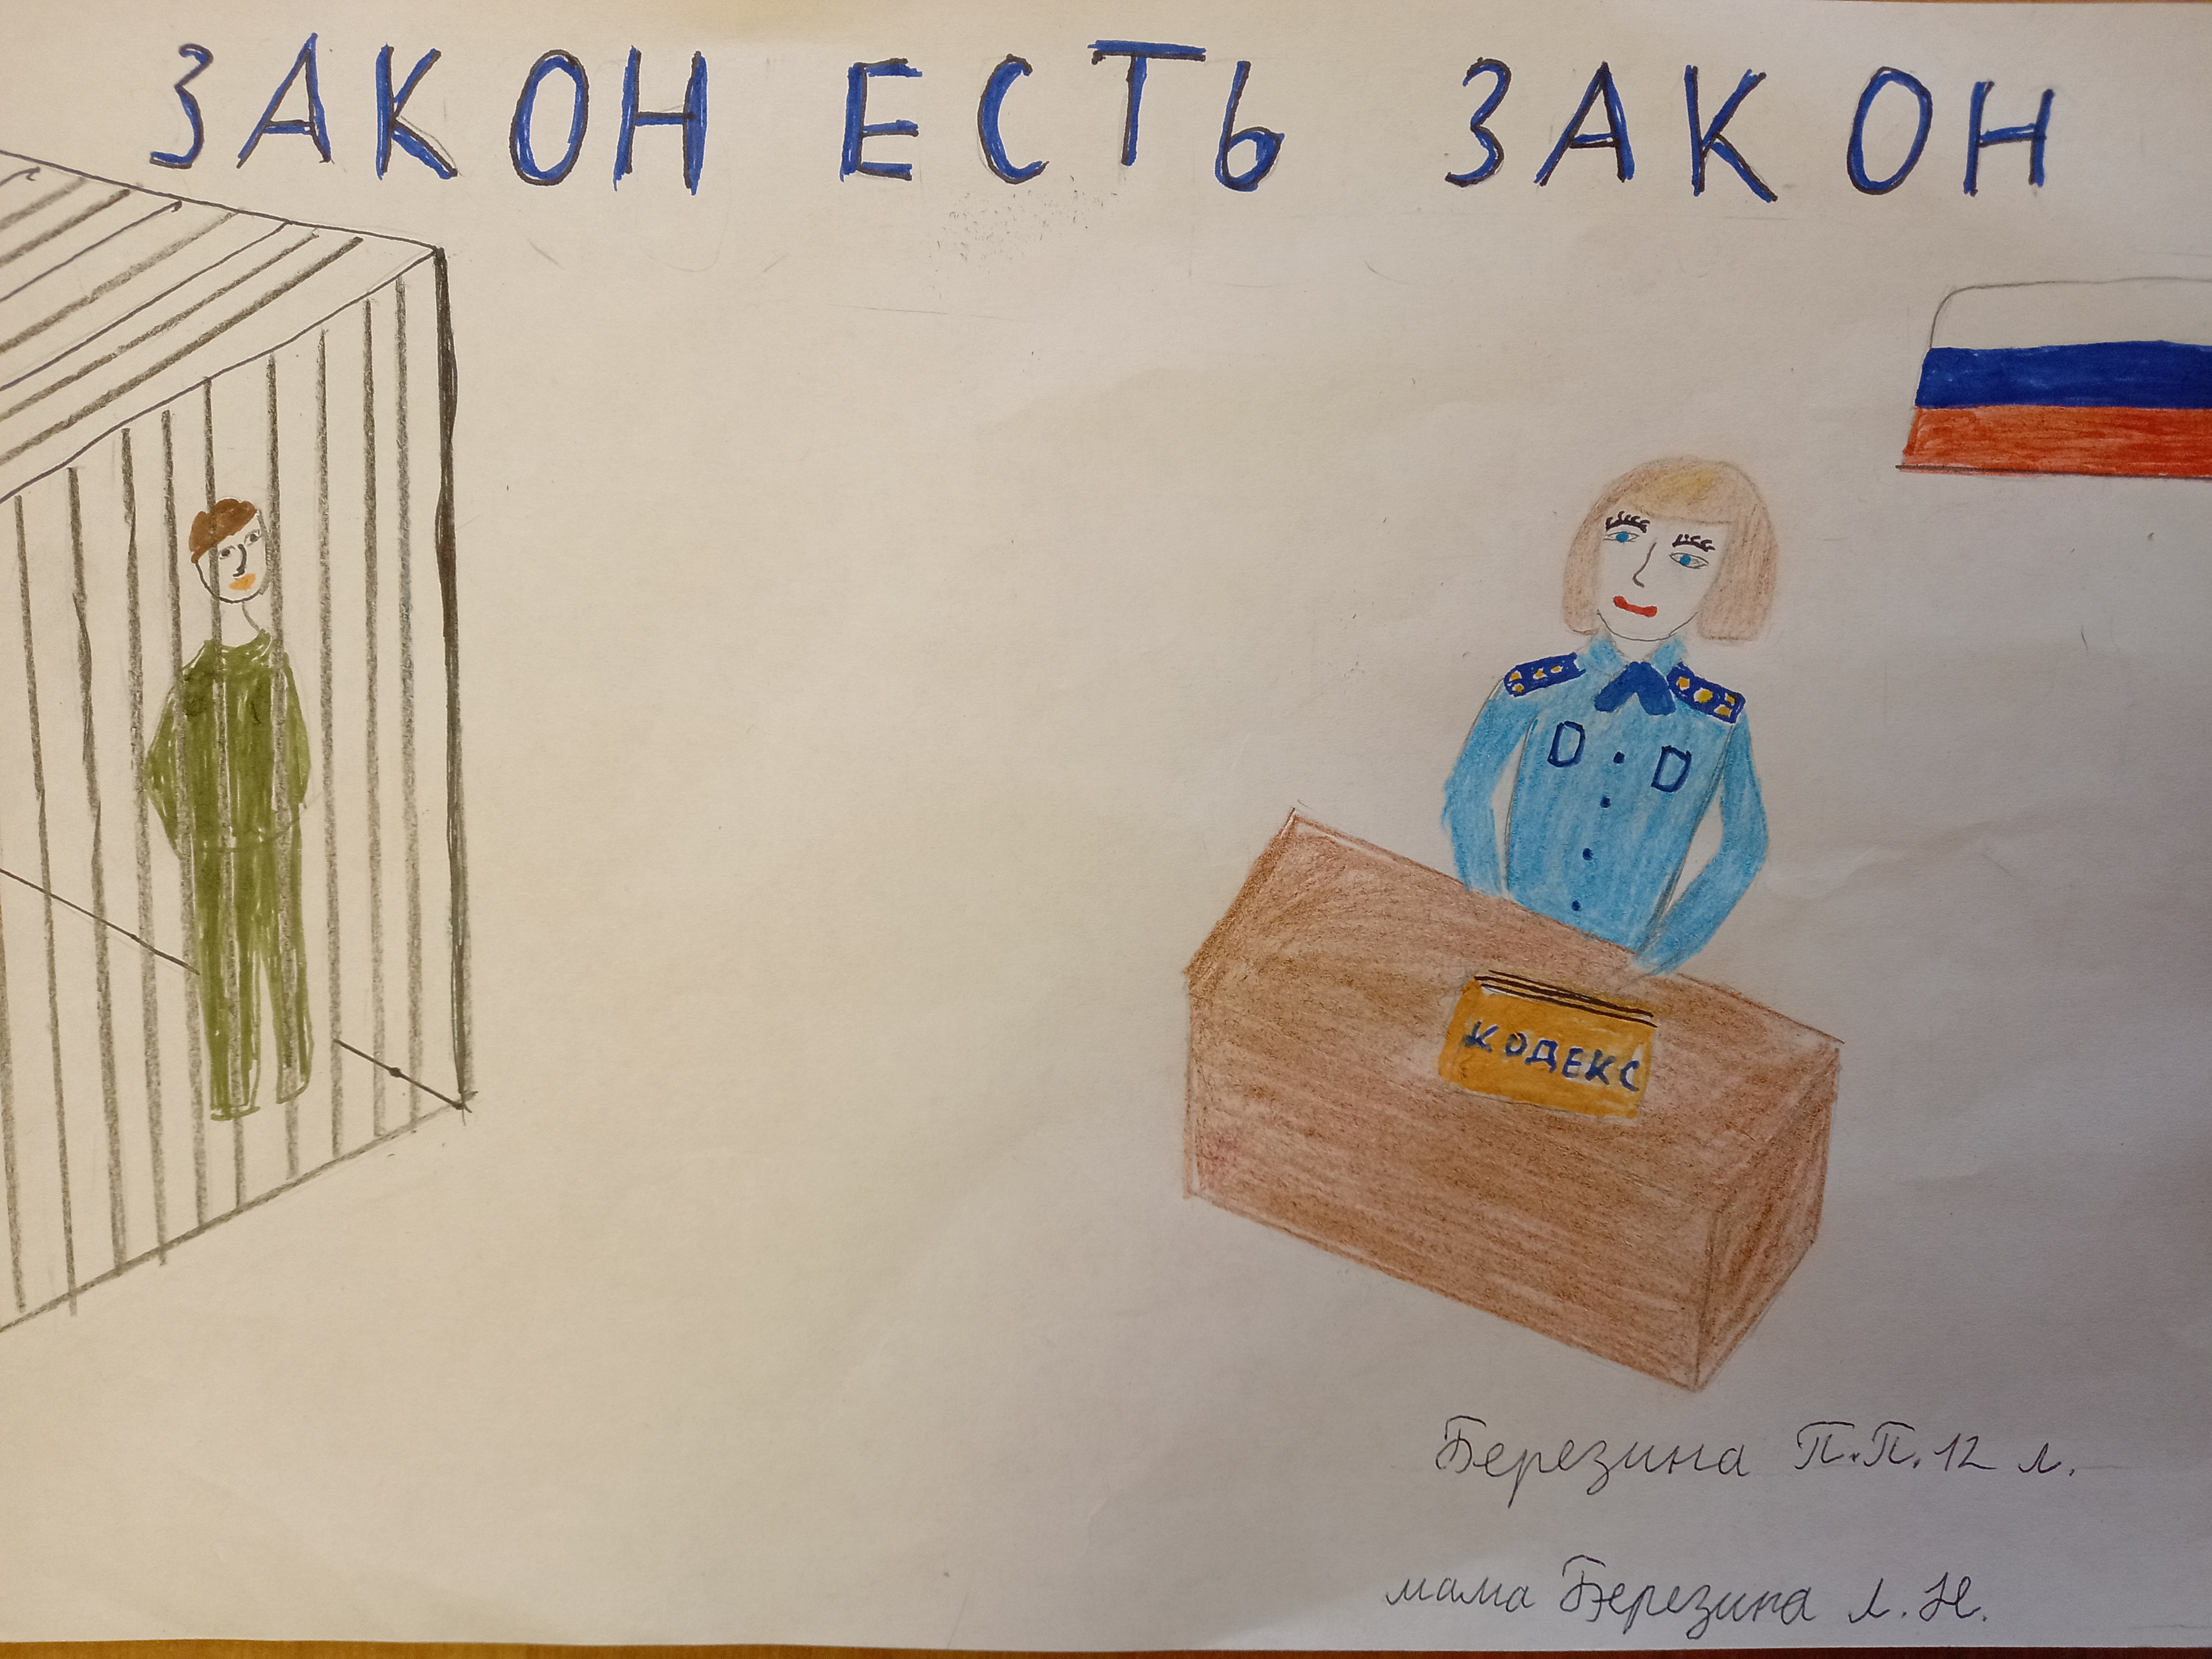 ЗАКОН ЕСТЬ ЗАКОН
КОДЕКС
Березина П.П. 12 л.
мама Березина Л. Н.